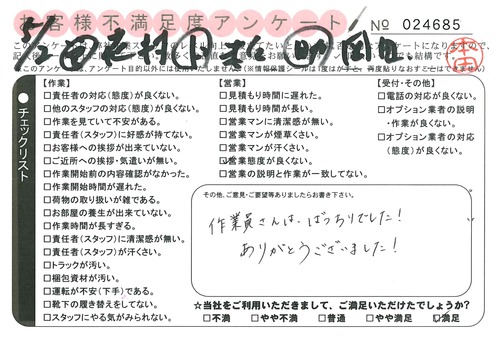 お客様不満足度アンケート
№ 024685
チェックリスト
【作業】
□責任者の対応(態度)が良くない。
□他のスタッフの対応(態度)が良くない。
□作業を見ていて不安がある。
□責任者(スタッフ)に好感が持てない。
□お客様への挨拶が出来ていない。
□ご近所への挨拶・気遣いが無い。
□作業開始前の内容確認がなかった。
□作業開始時間が遅れた。
□荷物の取り扱いが雑である。
□お部屋の養生が出来ていない。
□作業時間が長すぎる。
□責任者(スタッフ)に清潔感が無い。
□責任者(スタッフ)が汗くさい。
□トラックが汚い。
□梱包資材が汚い。
□運転が不安(下手)である。
□靴下の履き替えをしてない。
□スタッフにやる気がみられない。
【営業】
□見積もり時間に遅れた。
□見積もり時間が長い。
□営業マンに清潔感が無い。
□営業マンが煙草くさい。
□営業マンが汗くさい。
□営業態度が良くない。
□営業の説明と作業が一致してない。
【受付・その他】
□電話の対応が良くない。
□オプション業者の説明
・作業が良くない。
□オプション業者の対応
(態度)が良くない。
その他、ご意見・ご要望等ありましたらお書き下さい。
作業員さんは、ばっちりでした!
ありがとうございました!
☆当社をご利用いただきまして、ご満足いただけたでしょうか?
□不満 □やや不満 □普通 □やや満足 □満足